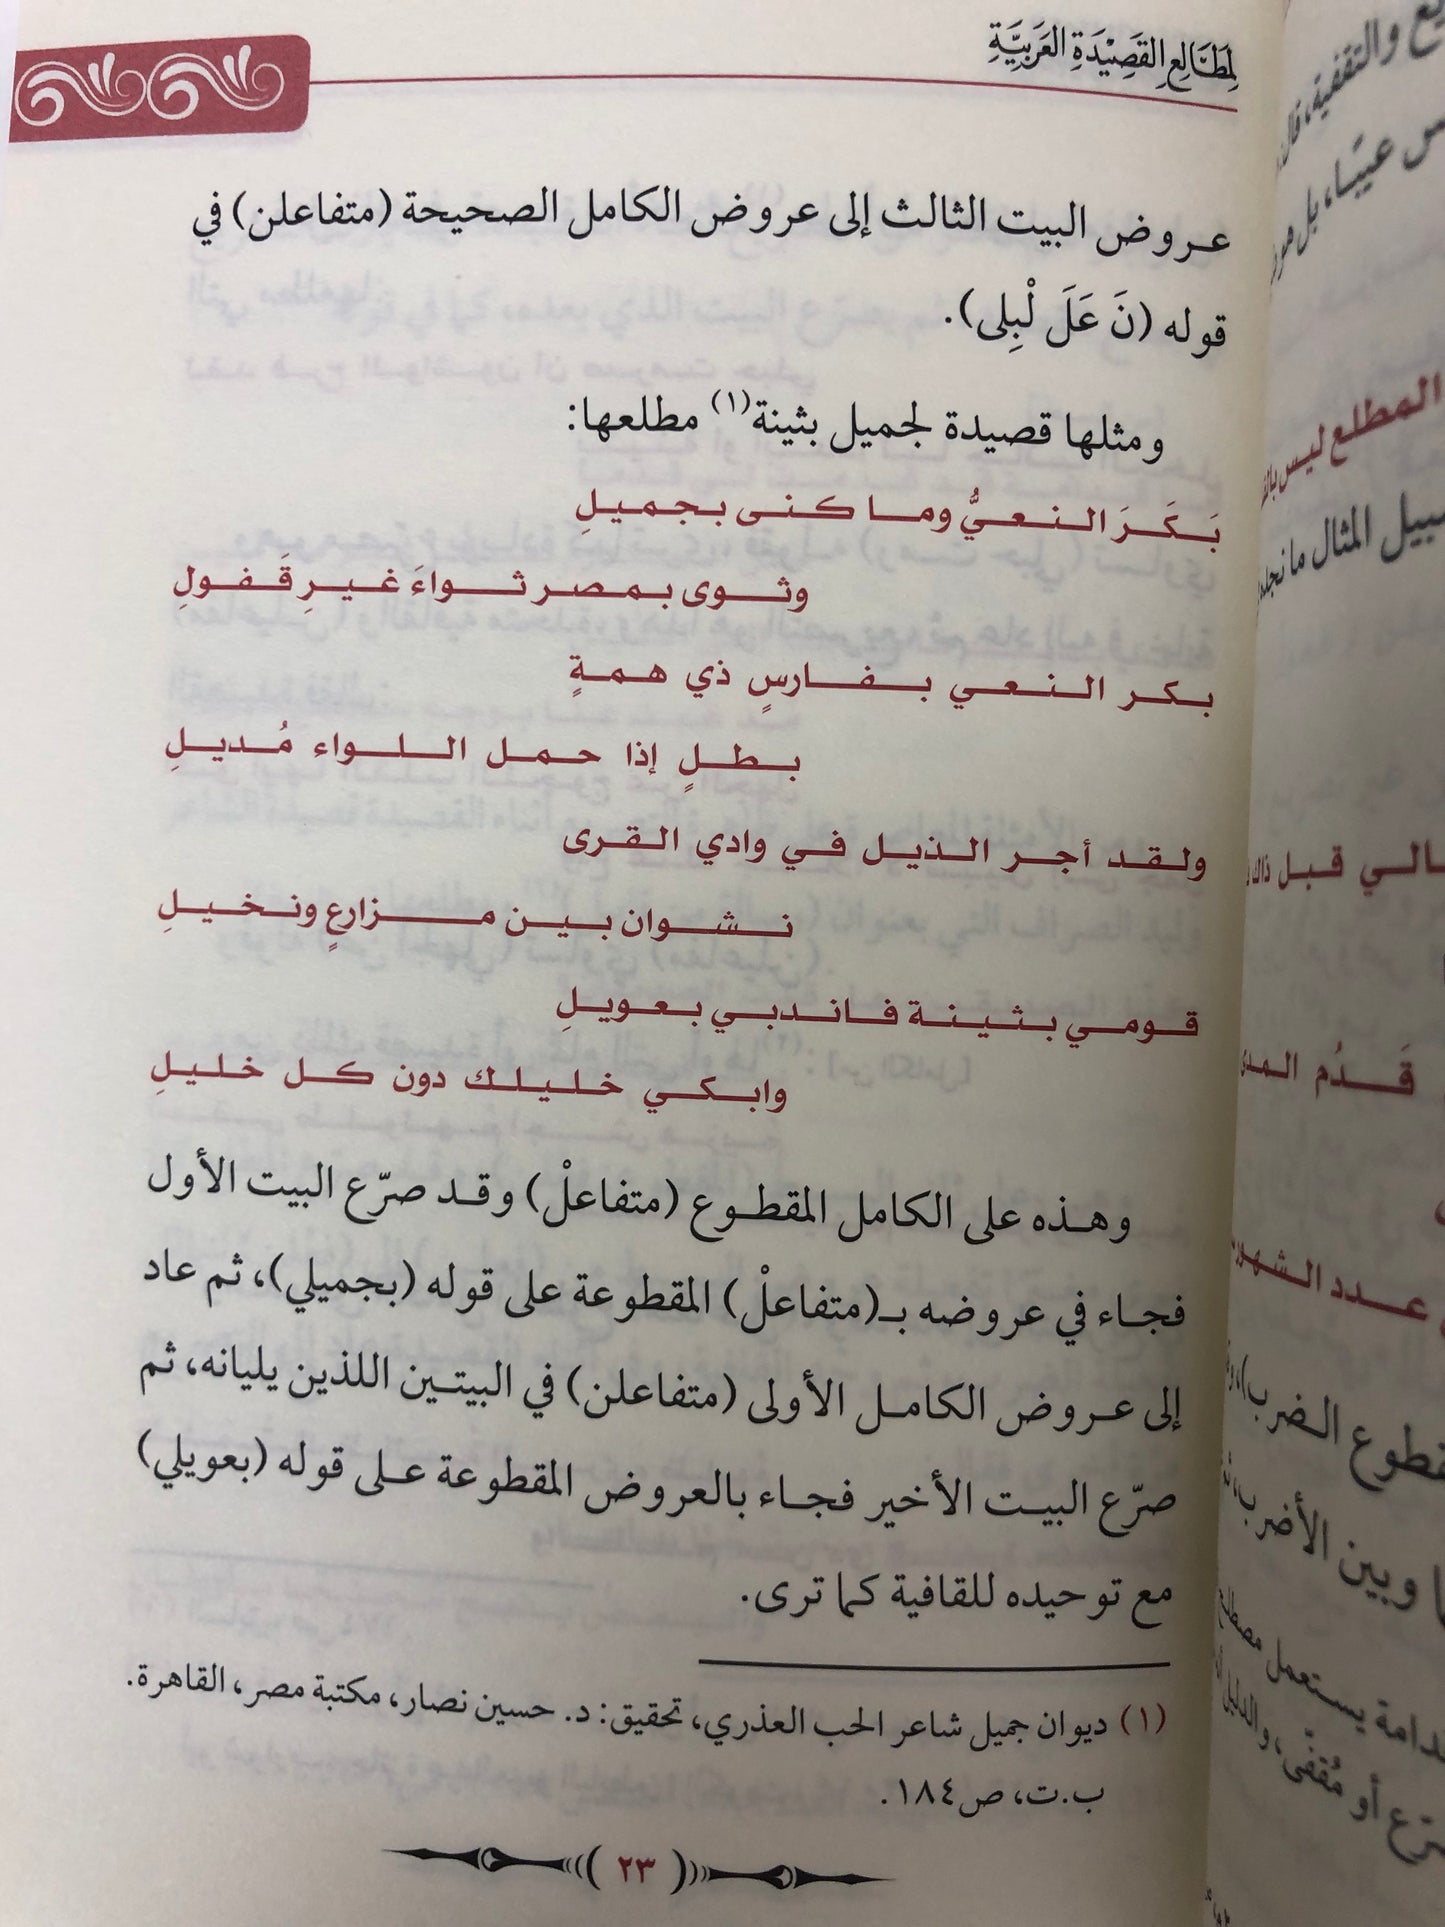 لمطالع القصيدة العربية
عروض البيت الثالث إلى عروض الكامل الصحيحة (متفاعلن) في
قوله (نَ عَلَ لْبِلى).
ومثلها قصيدة لجميل بثينة(١) مطلعها:
بَكَرَ النعيُّ وما كنى بجميلِ
وثوى بمصر ثواءَ غيرِ قَفولِ
بكر النعي بفارسٍ ذي همةٍ
بطلٍ إذا حمل اللواء مُديلِ
ولقد أجر الذيل في وادي القرى
نشوان بين مزارعٍ ونخيلِ
قومي بثينة فاندبي بعويلِ
وابكي خليلك دون كل خليلِ
وهذه على الكامل المقطوع (متفاعلْ) وقد صرّع البيت الأول
فجاء في عروضه بـ(متفاعلْ) المقطوعة على قوله (بجميلي)، ثم عاد
إلى عروض الكامل الأولى (متفاعلن) في البيتين اللذين يليانه، ثم
صرّع البيت الأخير فجاء بالعروض المقطوعة على قوله (بعويلي)
مع توحيده للقافية كما ترى.
(١) ديوان جميل شاعر الحب العذري، تحقيق: د. حسين نصار، مكتبة مصر، القاهرة.
ب.ت، ص١٨٤.
(٢٣)
والتقفية،
عيبًا، بل هو
المطلع ليس
سبيل المثال ما نجد
قبل ذاك
قَدُم
عدد الشهور
الضرب)
وبين الأضرب
يستعمل
أو مُقفّى،